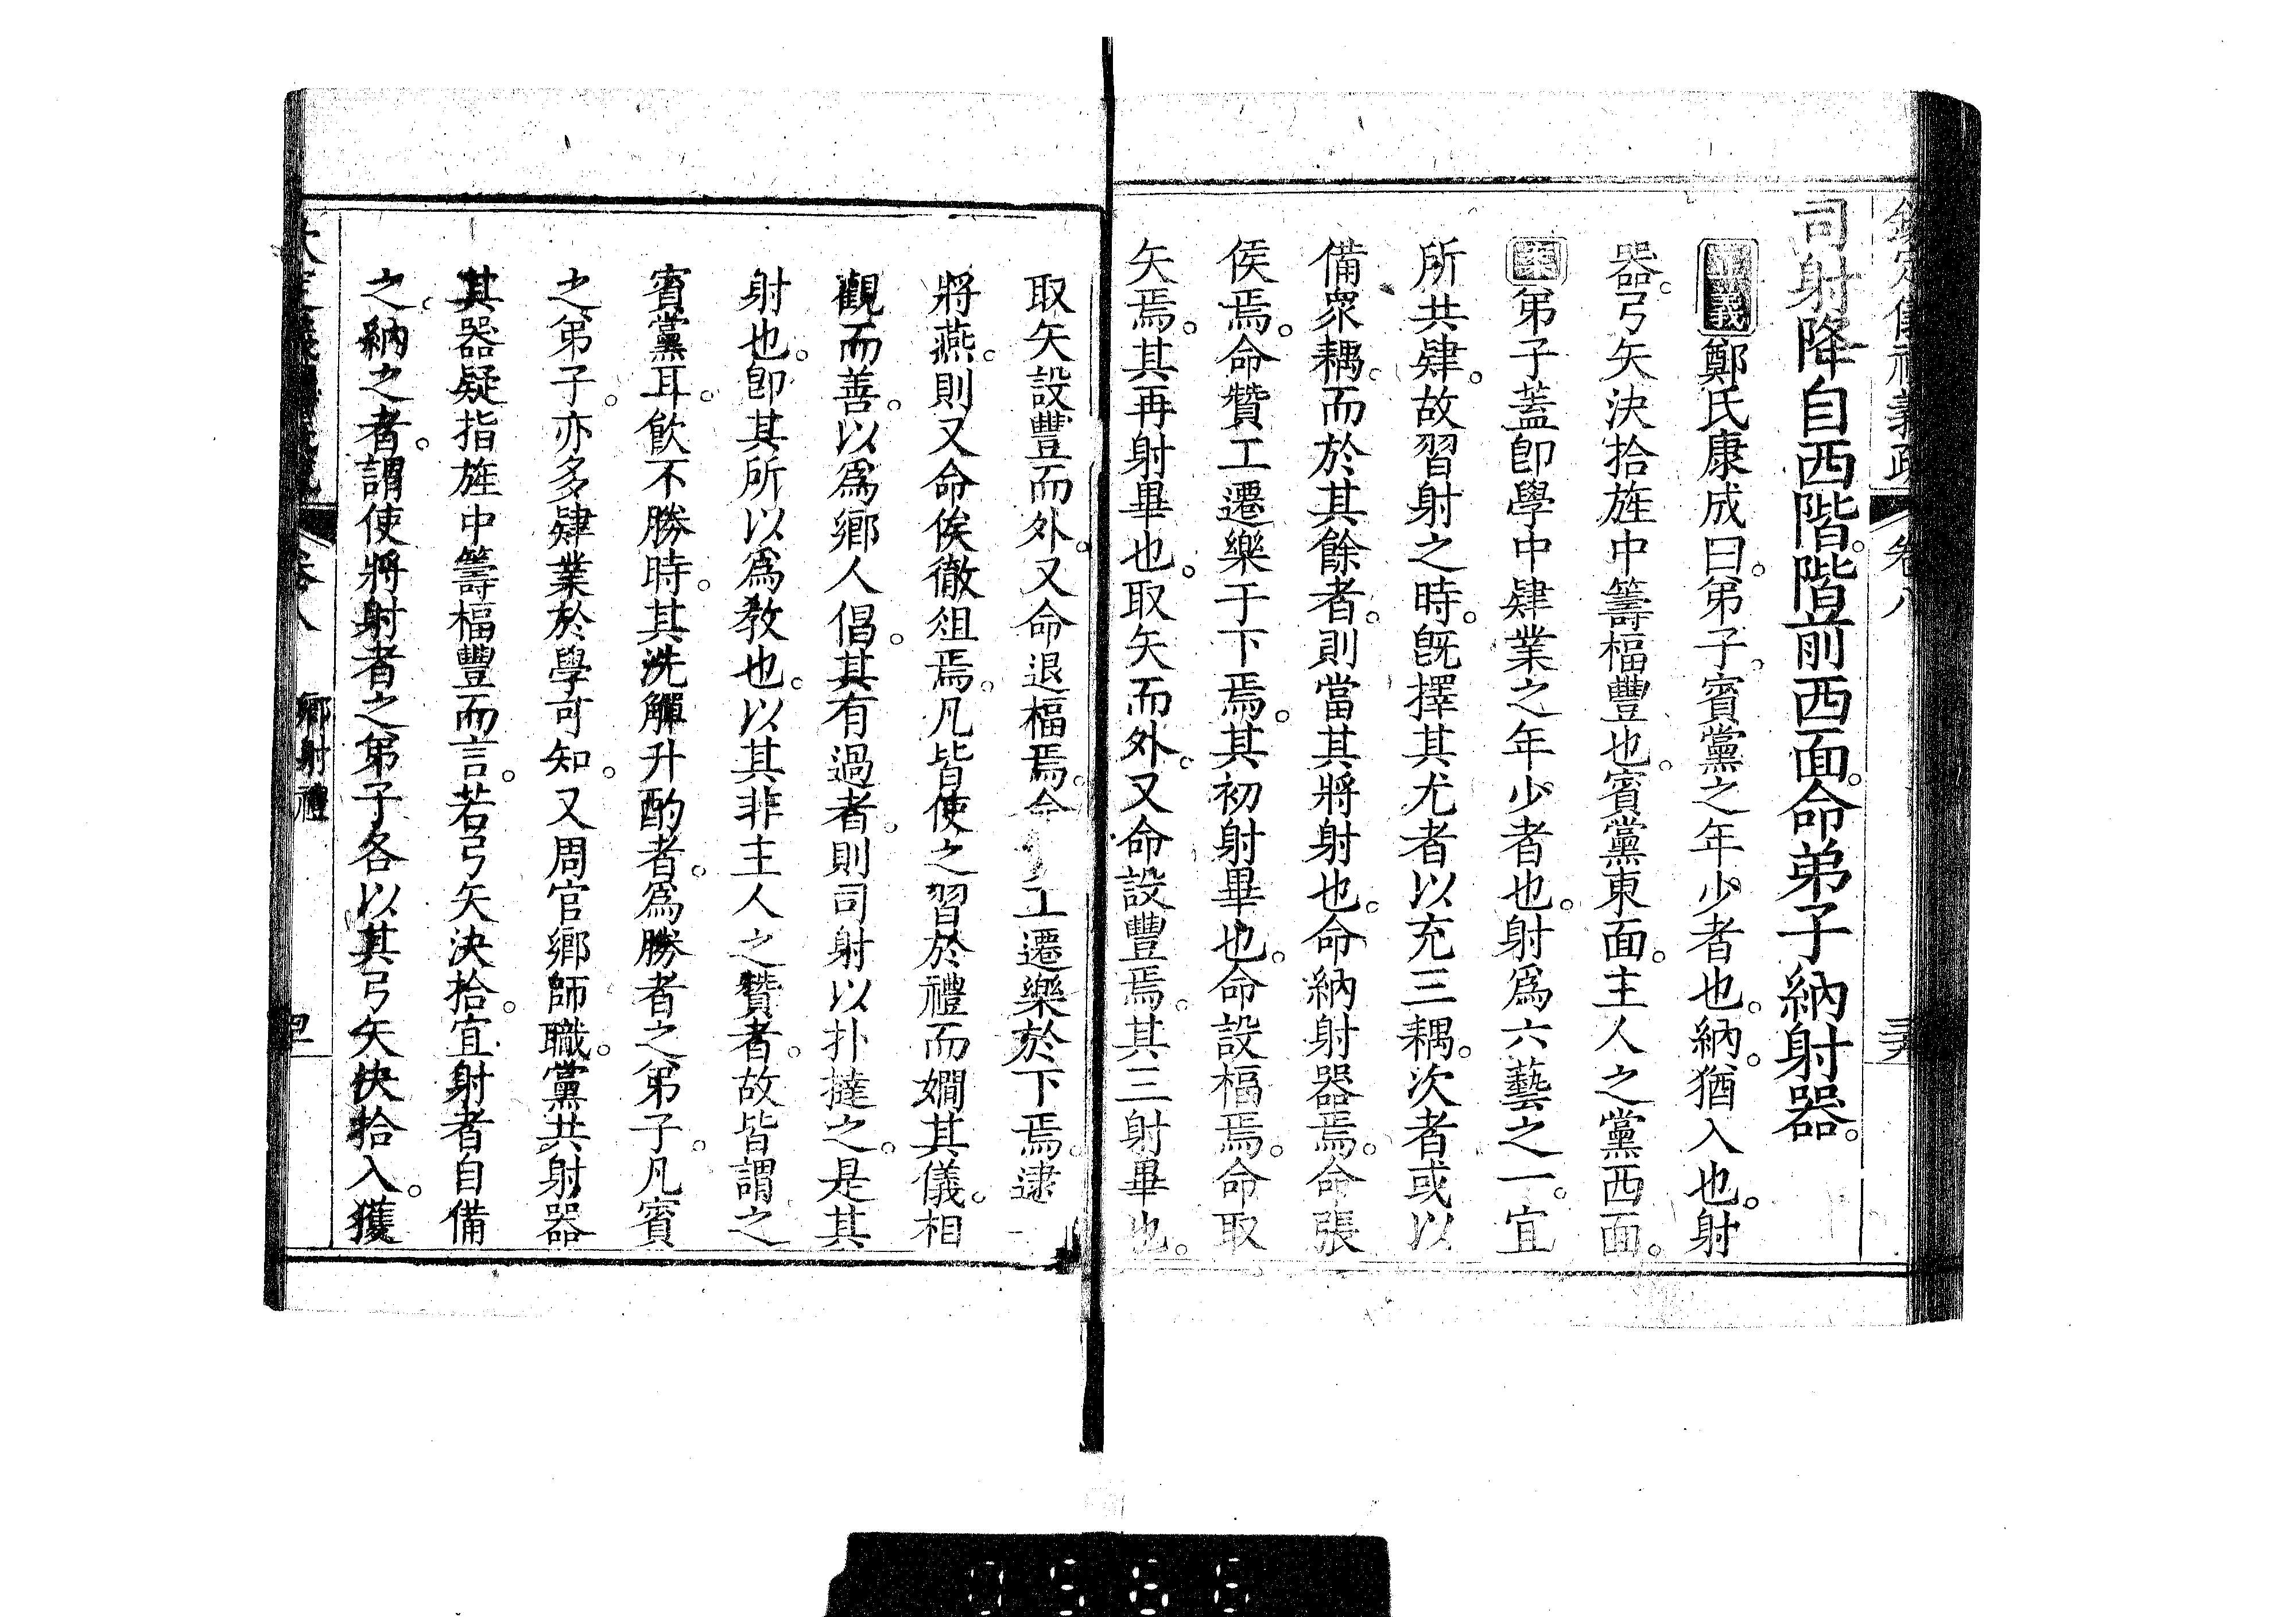 欽定儀禮義疏 卷八
司射降自西階。階前西面。命弟子納射器。
正義鄭氏康成曰。弟子。賓黨之年少者也。納。猶入也。射
器。弓矢決拾旌中籌楅豐也。賓黨東面。主人之黨西面。
案弟子蓋卽學中肄業之年少者也。射爲六藝之一。宜
所共肄。故習射之時。旣擇其尤者以充三耦。次者或以
備衆耦。而於其餘者。則當其將射也。命納射器焉。命張
侯焉。命贊工遷樂于下焉。其初射畢也。命設楅焉。命取
矢焉。其再射畢也。取矢而外。又命設豐焉。其三射畢也。
取矢設豐而外。又命退楅焉。命 工遷樂於下焉。逮
將燕。則又命俟徹俎焉。凡皆使之習於禮而嫺其儀。相
觀而善。以爲鄉人倡。其有過者。則司射以扑撻之。是其
射也。卽其所以爲敎也。以其非主人之贊者。故皆謂之
賓黨耳。飮不勝時。其洗觶升酌者。爲勝者之弟子。凡賓
之弟子。亦多肄業於學可知。又周官鄉師職。黨共射器
其器疑指旌中籌楅豐而言。若弓矢決拾。宜射者自備
之。納之者。謂使將射者之弟子各以其弓矢決拾入。獲
卷八 鄉射禮